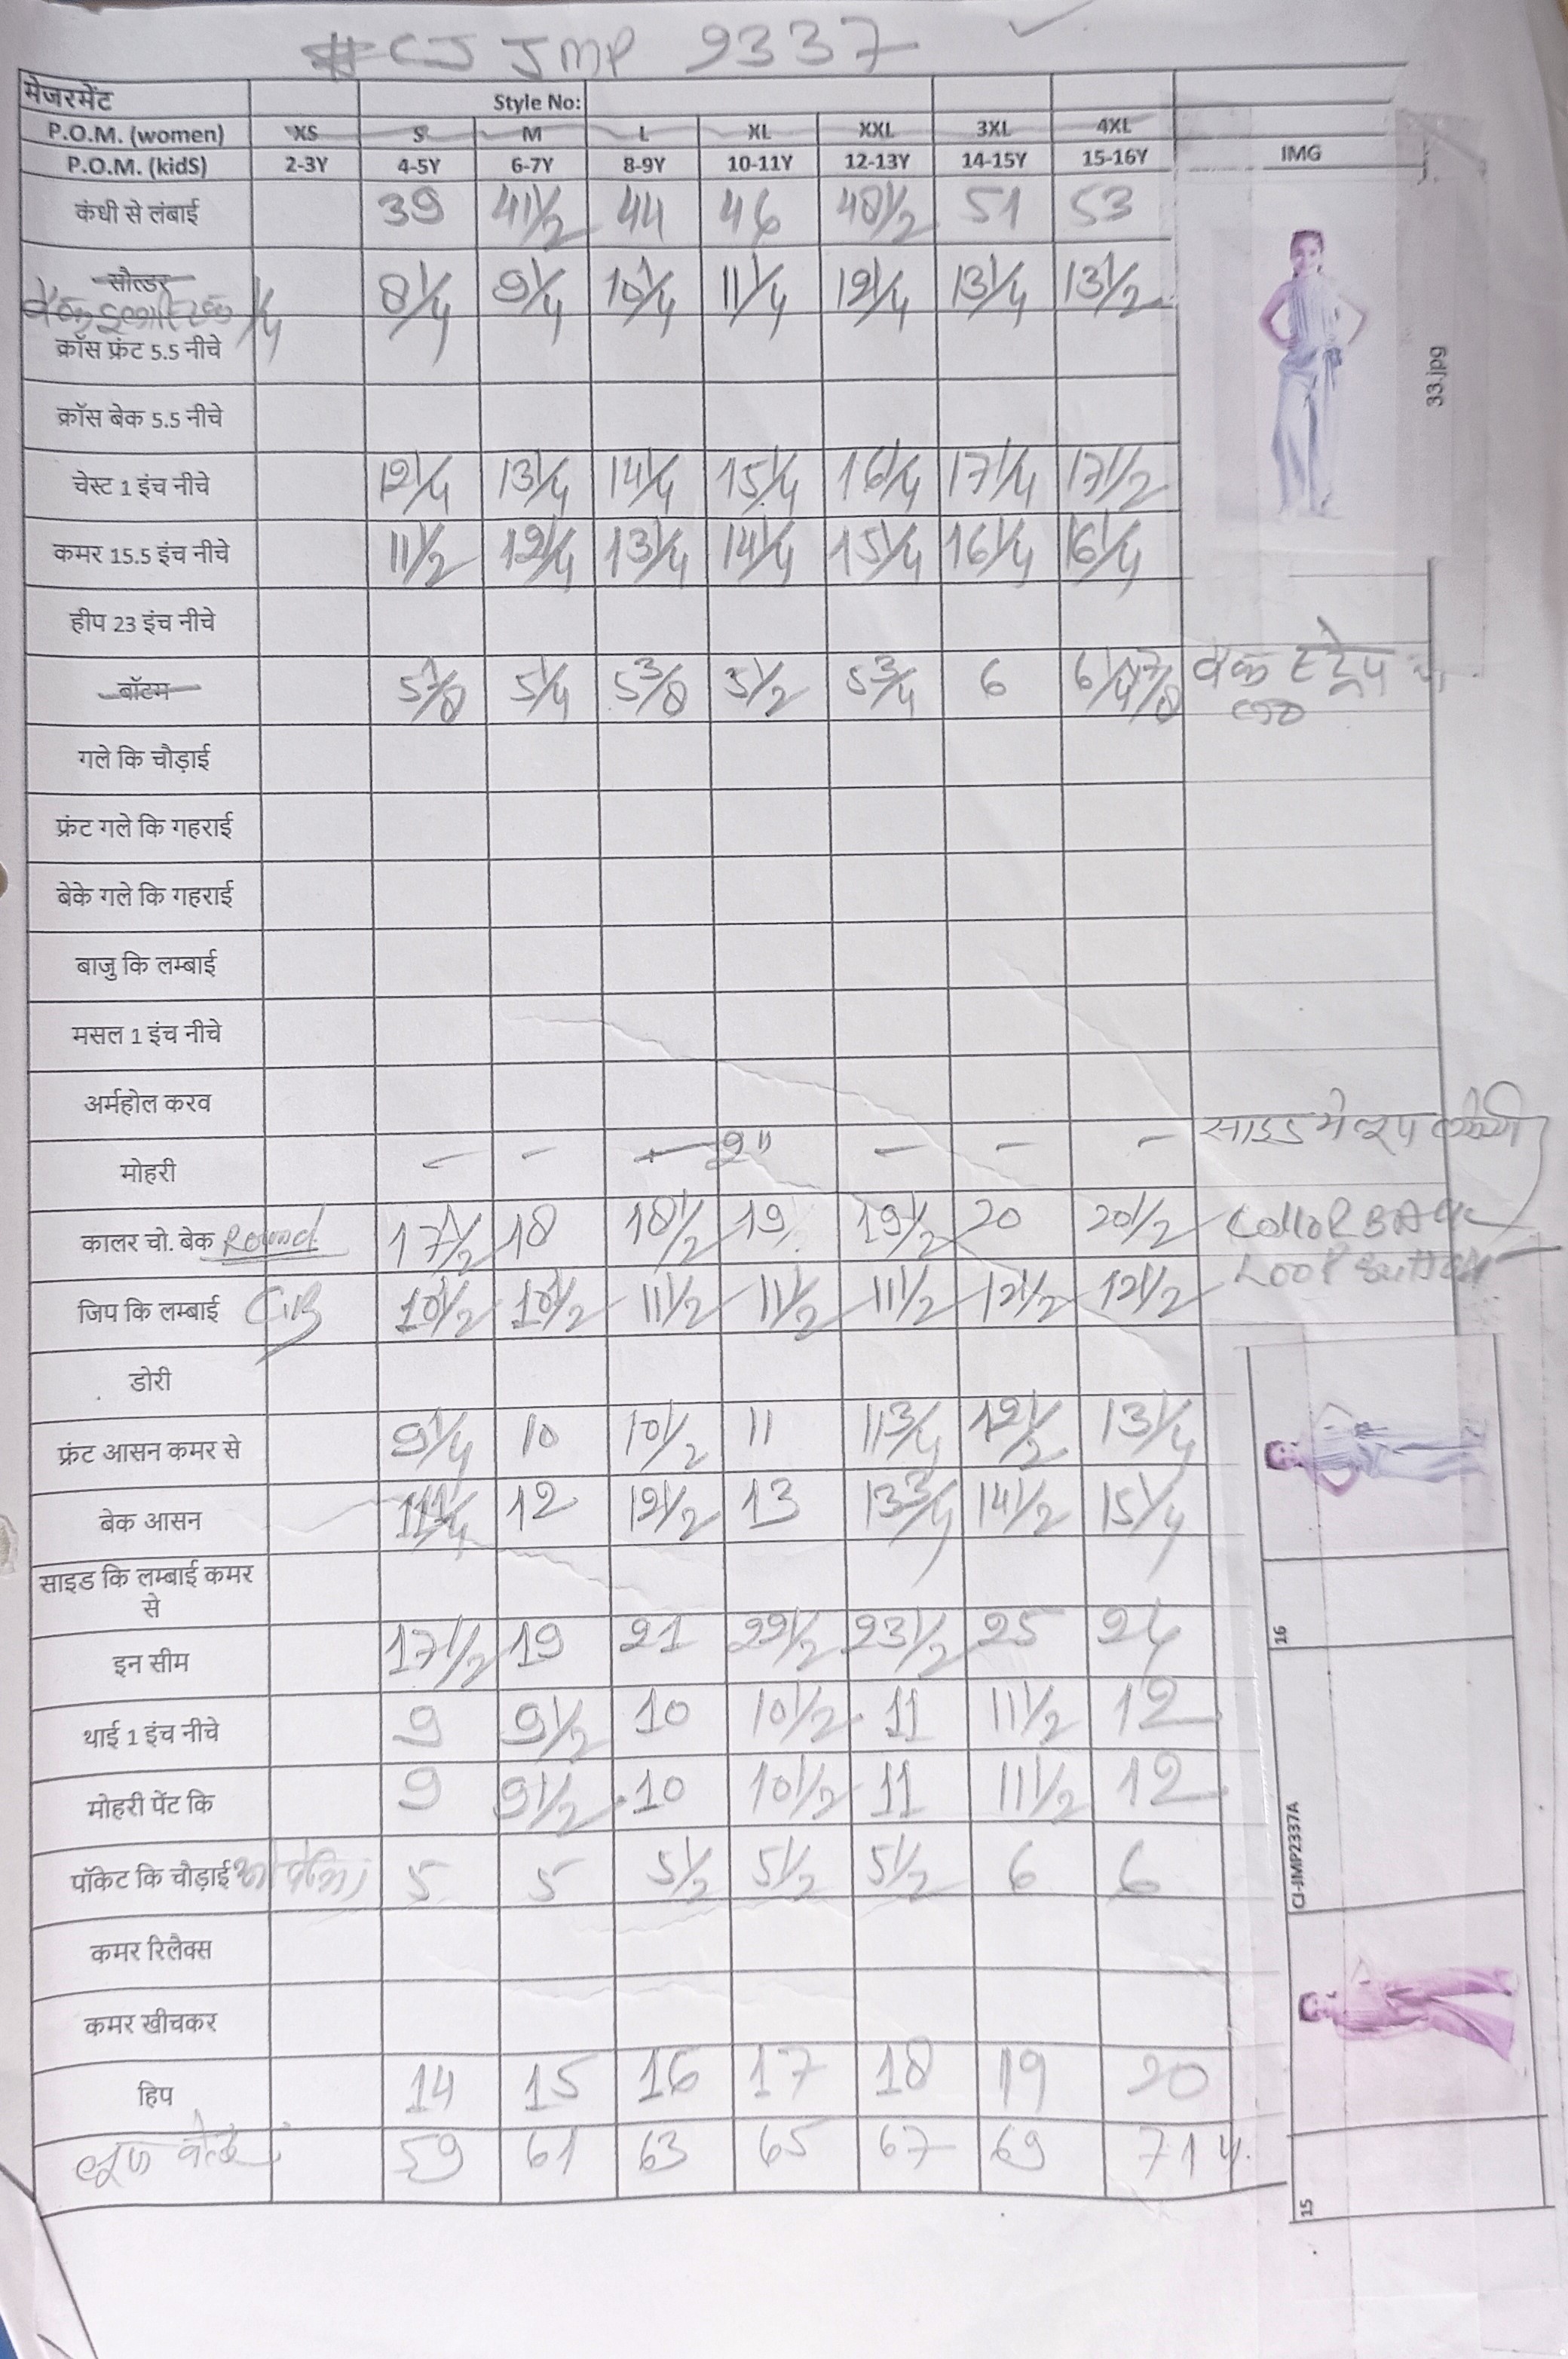 #CJ JMP 2337
मेजरमेंट Style No:
P.O.M. (women) XS S M L XL XXL 3XL 4XL
P.O.M. (kidS) 2-3Y 4-5Y 6-7Y 8-9Y 10-11Y 12-13Y 14-15Y 15-16Y IMG
कंधी से लंबाई 39 41 1/2 44 46 48 1/2 51 53
सौल्डर 8 1/4 9 1/4 10 1/4 11 1/4 12 1/4 13 1/4 13 1/2
क्रॉस फ्रंट 5.5 नीचे
क्रॉस बेक 5.5 नीचे
33.jpg
चेस्ट 1 इंच नीचे 12 1/4 13 1/4 14 1/4 15 1/4 16 1/4 17 1/4 17 1/2
कमर 15.5 इंच नीचे 11 1/2 12 1/4 13 1/4 14 1/4 15 1/4 16 1/4 16 1/4
हीप 23 इंच नीचे
बॉटम 5 1/4 5 3/8 5 1/2 5 3/4 6 बेक स्ट्रेप
गले कि चौड़ाई
फ्रंट गले कि गहराई
बेके गले कि गहराई
बाजु कि लम्बाई
मसल 1 इंच नीचे
अर्महोल करव
मोहरी - - - 2" - - - साइड मे लूप
कालर चो. बेक Round 17 1/2 18 18 1/2 19 19 1/2 20 20 1/2 COLLOR BACK
LOOP BUTTON
जिप कि लम्बाई 10 1/2 10 1/2 11 1/2 11 1/2 11 1/2 12 1/2 12 1/2
डोरी
फ्रंट आसन कमर से 9 1/4 10 10 1/2 11 11 3/4 12 1/2 13 1/4
बेक आसन 11 1/4 12 12 1/2 13 13 3/4 14 1/2 15 1/4
साइड कि लम्बाई कमर
से
इन सीम 17 1/2 19 21 22 1/2 23 1/2 25 26
16
थाई 1 इंच नीचे 9 9 1/2 10 10 1/2 11 11 1/2 12
मोहरी पेंट कि 9 9 1/2 10 10 1/2 11 11 1/2 12
CJ-JMP2337A
पॉकेट कि चौड़ाई 5 5 5 1/2 5 1/2 5 1/2 6 6
कमर रिलैक्स
कमर खीचकर
हिप 14 15 16 17 18 19 20
लूप बेल्ट 59 61 63 65 67 69 71
15